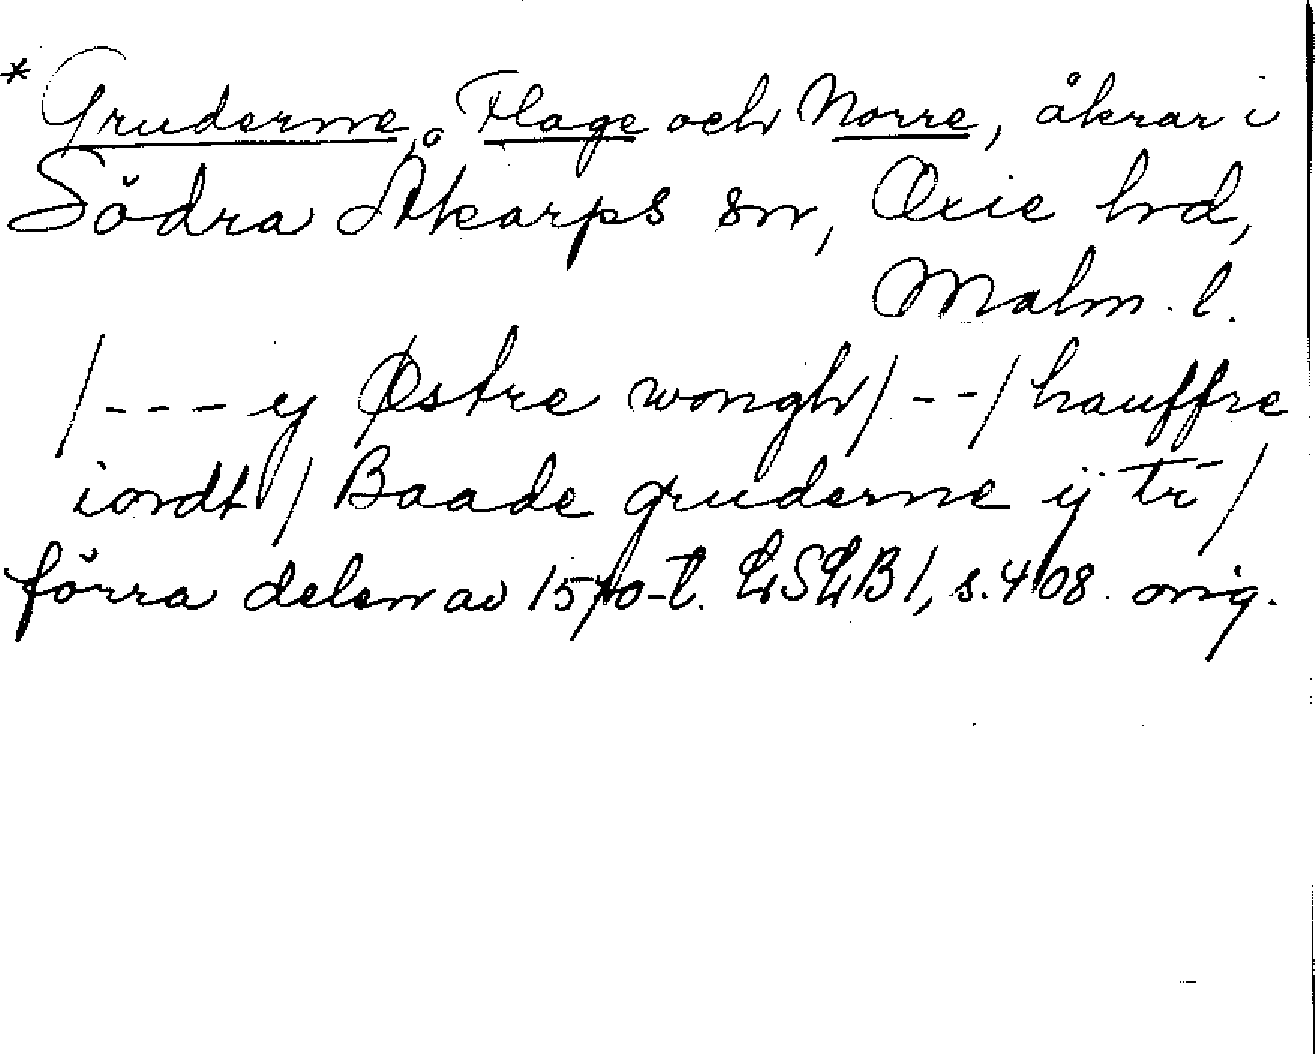 * Gruderne, Flage och Norre, åkrar i
Södra Åkarps sn, Oxie hd,
Malm. l.
/--- ij Østre wongh/--/hauffre
iordt/ Baade gruderne ij tr /
förra delen av 1570-t. LSLB 1, s. 408. orig.